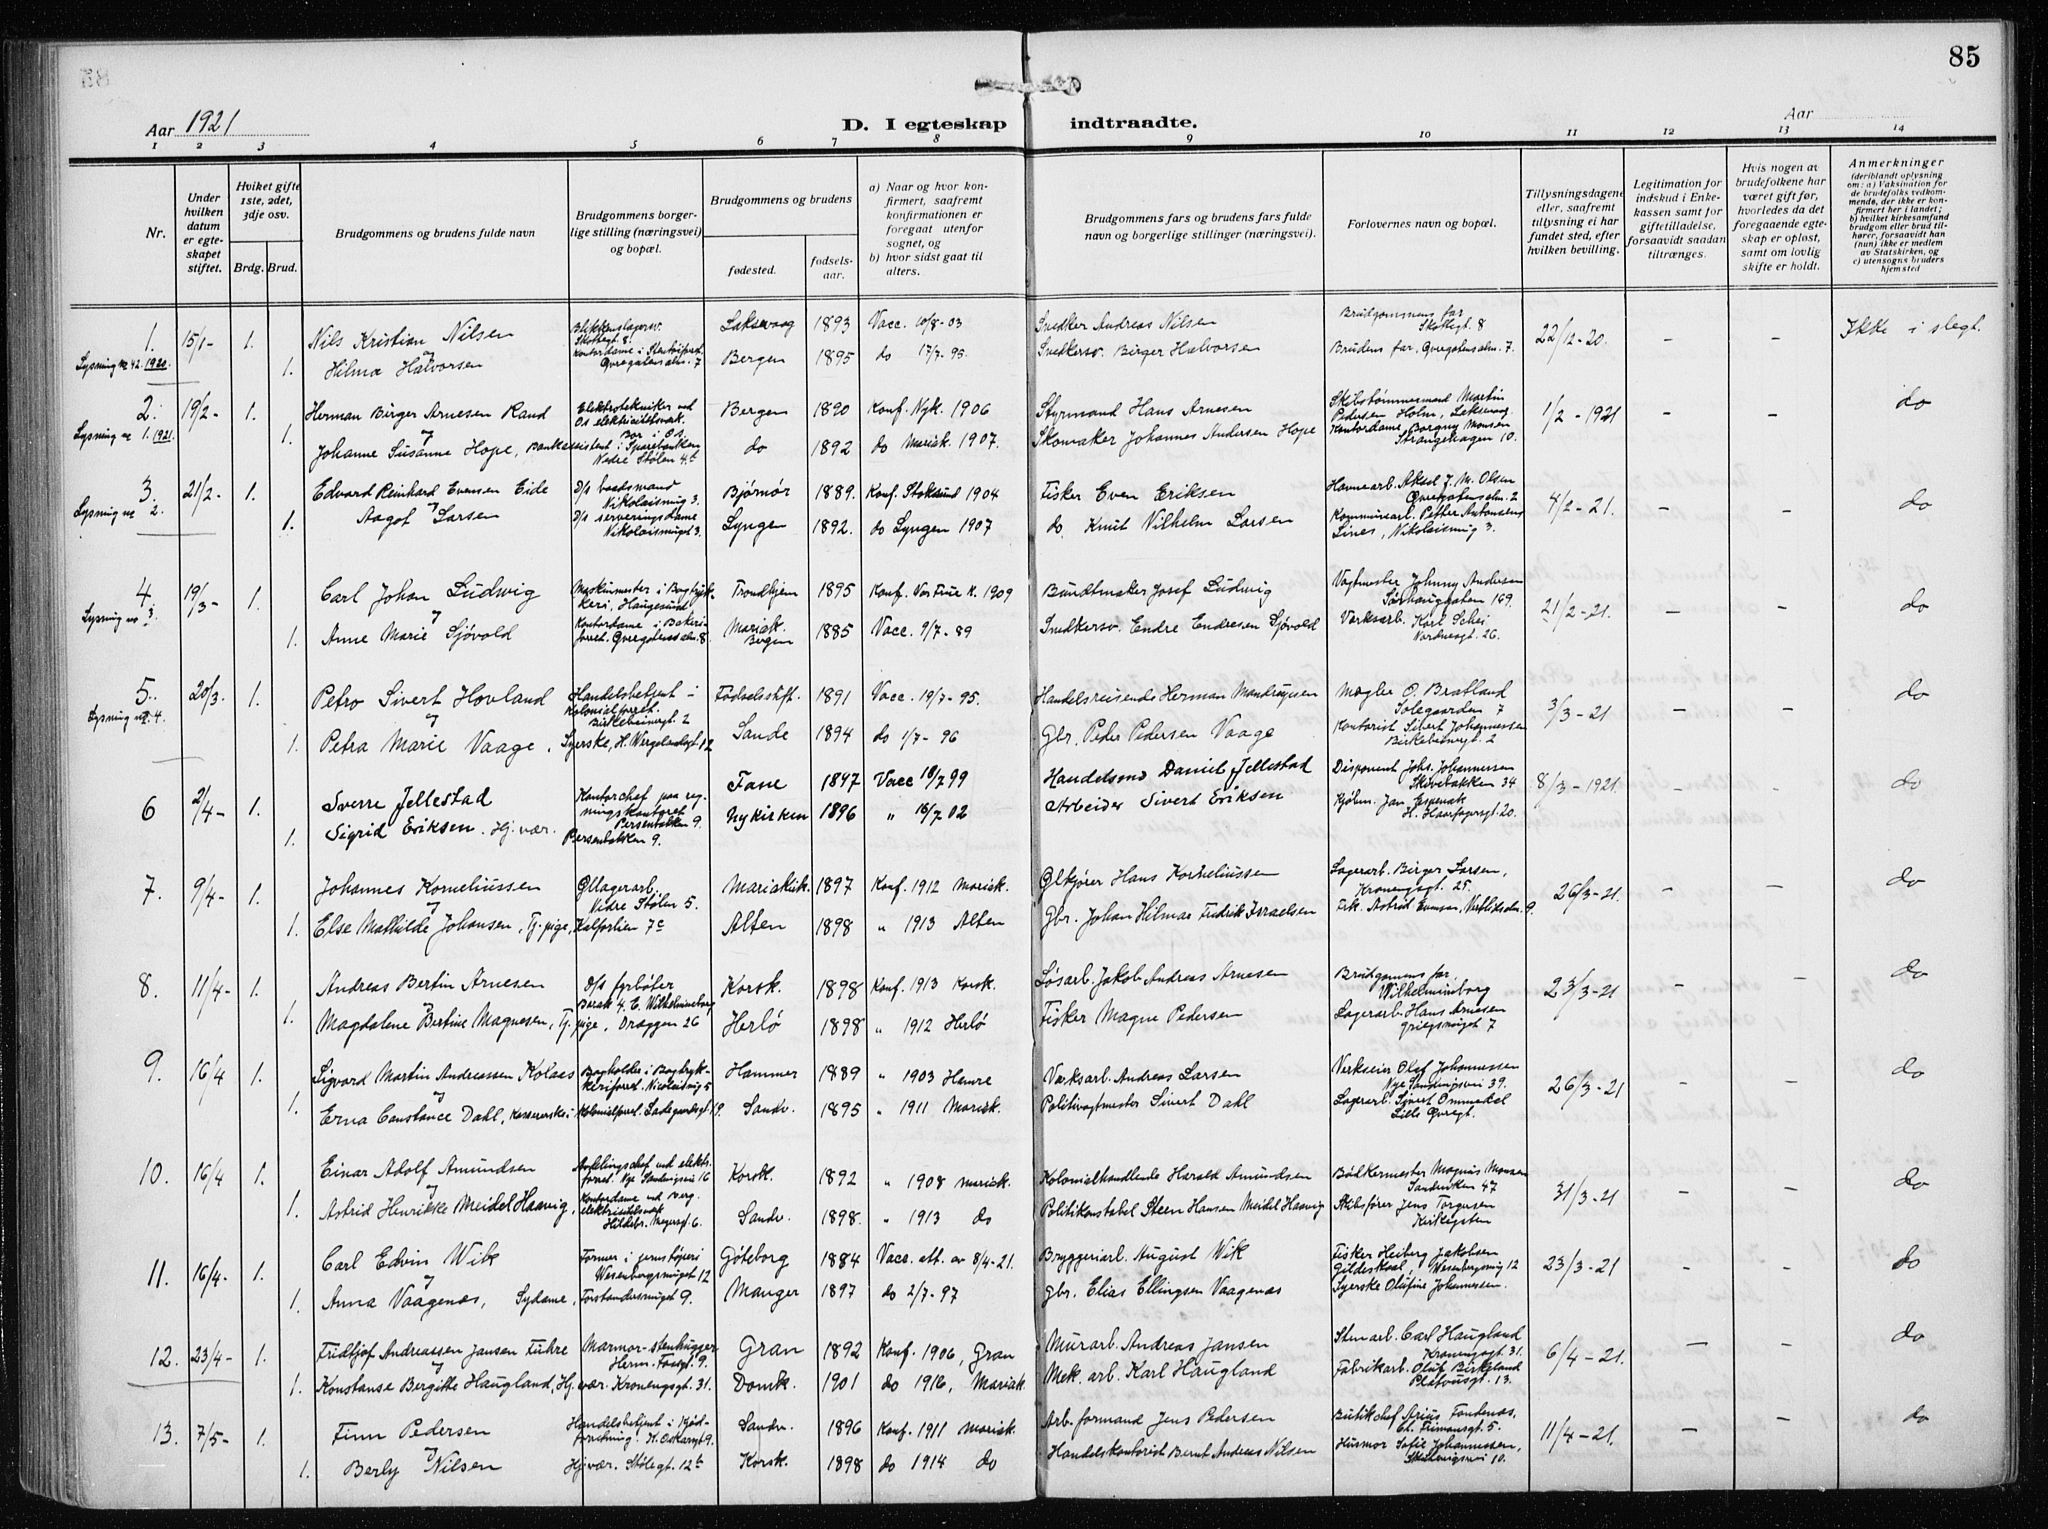 85
Aar 1921
D. I egteskap indtraadte.
Aar
1 2 3 4 5 6 7 8 9 10 11 12 13 14
Nr.
Under hvilken datum er egteskapet stiftet.
Hviket gifte 1ste, 2det, 3dje osv.
Brdg. Brud.
Brudgommens og brudens fulde navn
Brudgommens borgerlige stilling (næringsvei) og bopæl.
Brudgommens og brudens
fødested.
fødselsaar.
a) Naar og hvor konfirmert, saafremt konfirmationen er foregaat utenfor sognet, og
b) hvor sidst gaat til alters.
Brudgommens fars og brudens fars fulde navn og borgerlige stillinger (næringsvei).
Forlovernes navn og bopæl.
Tillysningsdagene eller, saafremt tillysning ei har fundet sted, efter hvilken bevilling.
Legitimation for indskud i Enkekassen samt for giftetilladelse, forsaavidt saadan tiltrænges.
Hvis nogen av brudefolkene har været gift før, hvorledes da det foregaaende egteskap er opløst, samt om lovlig skifte er holdt.
Anmerkninger (deriblandt oplysning om: a) Vaksination for de brudefolks vedkommende, der ikke er konfirmert her i landet; b) hvilket kirkesamfund brudgom eller brud tilhører, forsaavidt han (hun) ikke er medlem av Statskirken, og c) utensogns bruders hjemsted
1. 15/1- 1. Nils Kristian Nilsen Blikkenslagersv. Skottegt. 8. Laksevaag 1893 Vacc. 10/8-03 Snedker Andreas Nilsen Brudgommens far Skottegt. 8 22/12-20. - - Ikke i slegt.
Lysning nr 42. 1920. 1. Hilma Halvorsen Øvregatens alm. 7 Bergen 1895 do 17/7-95. Snedkersv. Birger Halvorsen Brudens far, Øvregatens alm. 7.
2. 19/2- 1. Herman Birger Arnesen Rand Elektrotekniker ved Os elektricitetsverk. Bor i Os. Bergen 1890 Konf. Nyk. 1906 Styrmand Hans Arnesen Skibstømmermand Martin Pedersen Holm, Laksevaag 1/2-1921 - - do
Lysning nr 1. 1921. 1. Johanne Susanne Hope, Bankassistent i Sparebanken Nedre Stølen 4b do 1892 do Mariak 1907. Skomaker Johannes Andersen Hope Kontordame Borgny Monsen Strangehagen 10.
3. 21/2- 1. Edvard Reinhard Evensen Eide D/s baadsmand Nikolaismug 3. Bjørnør 1889. Konf. Stoksund 1904 Fisker Even Eriksen Havnearb. Aksel J. M. Olsen Øvregatens alm. 2 4/2-21. - - do
Lysning nr 2. 1. Aagot Larsen D/s serveringsdame Nikolaismugt 3. Lyngen 1892. do Lyngen 1907 do. Knut Vilhelm Larsen Kommunearb. Petter Antonsens Lines, Nikolaismug 3.
4 19/3- 1. Carl Johan Ludwig Maskinmester i Bogtrykkeri, Haugesund Trondhjem 1895 Konf. Vor Frue K. 1909 Bundtmaker Josef Ludwig Vagtmester Johnny Andersen Sørhauggaten 169. 21/2-21. - - do
Lysning nr 3. 1. Anne Marie Sjøvold Kontordame i Bakeriforret. Øvregatens alm. 8 Mariak. Bergen 1885 Vacc. 9/7-89 Snedkersv. Endre Endresen Sjøvold Verksarb. Karl Schei Nordnesgt. 26.
5. 20/3. 1. Petro Sivert Hovland Handelsbetjent i Kolonialforret. Birkebeinergt. 2 Fødselsstift. 1891 Vacc. 19/7-95. Handelsreisende Herman Mandrupsen Mægler O. Bratland Solegaarden 7 3/3-21 - - do
Lysning nr. 4. 1. Petra Marie Vaage, Syerske, H. Wergelandsgt. 12 Sande 1894 do 1/7-96 Gbr. Peder Pedersen Vaage Kontorist Sivert Johannessen Birkebeinergt. 2
6 2/4- 1. Sverre Jellestad Kontorchef paa regningskontoret Persenbakken 9. Fane 1897 Vacc 18/7 99 Handelsmd Daniel Jellestad Disponent Johs. Johannessen Skivebakken 34 8/3-1921. - - do
1. Sigrid Eriksen. Hj. vær. Persenbakken 9. Nykirken 1896 " 16/7 02 Arbeider Sivert Eriksen Kjøbm. Jan Espenak H. Haarfagersgt. 20.
7. 9/4- 1. Johannes Korneliussen Øllagerarb. Nedre Stølen 5. Mariakirk. 1897 Konf. 1912 Mariak. Ølkjører Hans Korneliussen Lagerarb. Birger Larsen, Kroningsgt. 25. 26/3-21. - - do
1. Else Mathilde Johansen, Tj. pige, Kalfarlien 7c Alten 1898 " 1913 Alten Gbr. Johan Hilmar Fredrik Israelsen Frk. Astrid Evensen, Verftsalm. 9.
8. 11/4- 1. Andreas Bertin Arnesen D/s fyrbøter Barak 4. E. Wilhelmineborg Korsk. 1898 Konf. 1913 Korsk. Løsarb. Jakob Andreas Arnesen Brudgommens far, Wilhelmineborg 23/3-21 - - do
1. Magdalene Bertine Magnesen, Tj. pige, Dræggen 26 Herlø 1898 " 1912 Herlø Fisker Magne Pedersen Lagerarb. Hans Arnesen Griegsmuget 7
9. 16/4 1. Sigvard Martin Andreassen Kolaas Bogholder i Bogtrykkeriforret. Nicolaismug 5 Hammer 1889 " 1903 Hamre Verksarb. Andreas Larsen Verkseier Olaf Johannessen Nye Sandviksvei 39. 26/3-21 - - do
1. Erna Constance Dahl, Kassererske i Kolonialforret. Ladegaardsgt. 19. Sandv. 1895 " 1911 Mariak. Politivagtmester Sivert Dahl Lagerarb. Sivert Ommedal Lille Øvregt.
10. 16/4 1. Einar Adolf Amundsen Avdelingschef ved elektr. forret. Nye Sandviksvei 16 Korsk. 1892 " 1908 Mariak. Kolonialhandlende Harald Amundsen Bødkermester Magnus Monsen Sandviken 47 31/3-21 - - do
1. Astrid Henrikke Meidel Haavig, Kontordame ved Berg. elektricitetsverk Hildebr. Meyersgt. 6. Sandv. 1898. " 1913 do Politikonstabel Steen Hansen Meidel Haavig Skibsfører Jens Torgersen Kirkegaten
11. 16/4- 1. Carl Edvin Wik Former i jernstøperi Wesenbergsmuget 12 Gøteborg 1884 Vacc. att. av 8/4-21. Bryggeriarb. August Wik Fisker Heiberg Jakobsen Gildeskaal, Wesenbergsmug 12 23/3-21 - - do
1. Anna Vaagenæs, Sydame, Forstandersmuget 9. Manger 1897 do 2/7-97 Gbr. Elias Ellingsen Vaagenæs Syerske Olufine Johannessen.
12. 23/4- 1. Fridtjof Andreassen Jansen Fuhre Marmor-stenhugger Herm. Fossgt. 9. Gran 1892 Konf. 1906, Gran Murarb. Andreas Jansen Stenarb. Carl Haugland Kroningsgt 31. 6/4-21. - - do
1. Konstanse Bergitte Haugland, Hj. vær. Kroningsgt. 31. Domk. 1901 do 1916, Mariak Mek. arb. Karl Haugland Fabrikarb. Oluf Birkeland Pløtvusgt. 13.
13. 7/5- 1. Finn Pedersen Handelsbetjent i Kjødforretning. K. Oskarsgt 9. Sandv. 1896 Konf. 1911 Mariak. Arb. formand Jens Pedersen Butikchef Arius Fondenæs, Ch. Timansgt. 5. 11/4-21. - - do
1. Berly Nilsen Hj. vær. Stølegt. 12b Korsk. 1898 do 1914 do Handelskontorist Bernt Andreas Nilsen Husmor Sofie Johannessen,